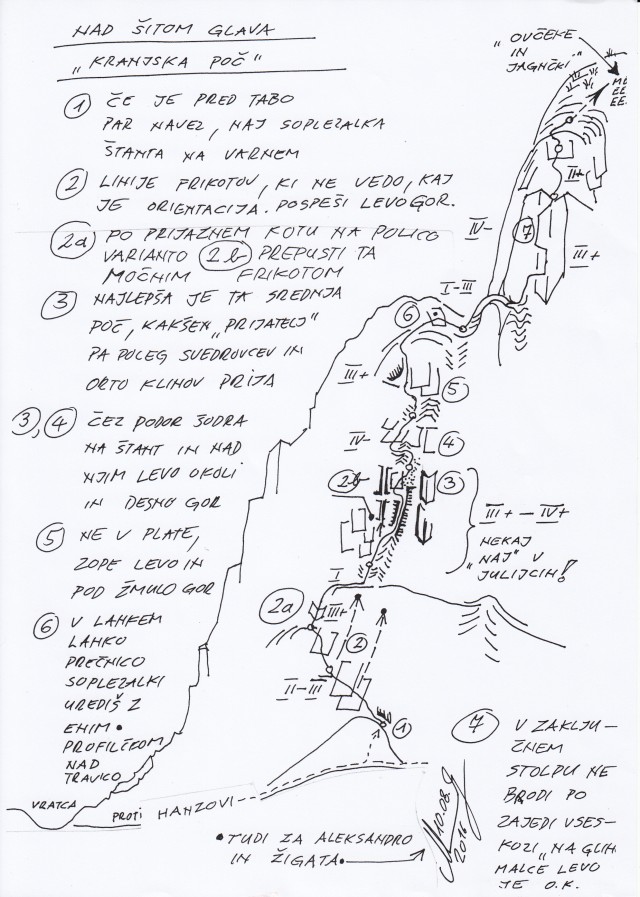 NAD ŠITOM GLAVA
"KRANJSKA POČ"
"OVČEKE
IN
JAGNČKI."
ME
EE
EE.
1 ČE JE PRED TABO
PAR NAVEZ, NAJ SOPLEZALKA
ŠTANTA NA VARNEM
2 LINIJE FRIKOTOV, KI NE VEDO, KAJ
JE ORIENTACIJA. POSPEŠI LEVO GOR.
2a PO PRIJAZNEM KOTU NA POLICO
VARIANTO 2b PREPUSTI TA
MOČNIM FRIKOTOM
3 NAJLEPŠA JE TA SREDNJA
POČ, KAKŠEN "PRIJATELJ"
PA POLEG SVEDROVCEV IN
ORTO KLINOV PRIJA
3, 4 ČEZ PODOR ŠODRA
NA ŠTANT IN NAD
NJIM LEVO OKOLI
IN DESNO GOR
5 NE V PLATE,
ZOPE LEVO IN
POD ŽMULO GOR
6 V LAHKEM
LAHKO
PREČNICO
SOPLEZALKI
UREDIŠ Z
ENIM
PROFILČKOM
NAD
TRAVICO
II+
IV-
7
III+
I-III
6
III+
5
IV-
4
2b
3
III+ - IV+
NEKAJ
"NAJ" V
JULIJCIH!
I
2a
III+
2
II-III
1
7 V ZAKLJU-
ČNEM
STOLPU NE
BRODI PO
ZAJEDI VSES-
KOZI, "NA GLIH
MALCE LEVO
JE O.K.
VRATCA
PROTI HANZOVI
• TUDI ZA ALEKSANDRO
IN ŽIGATA •
10.08.
2016